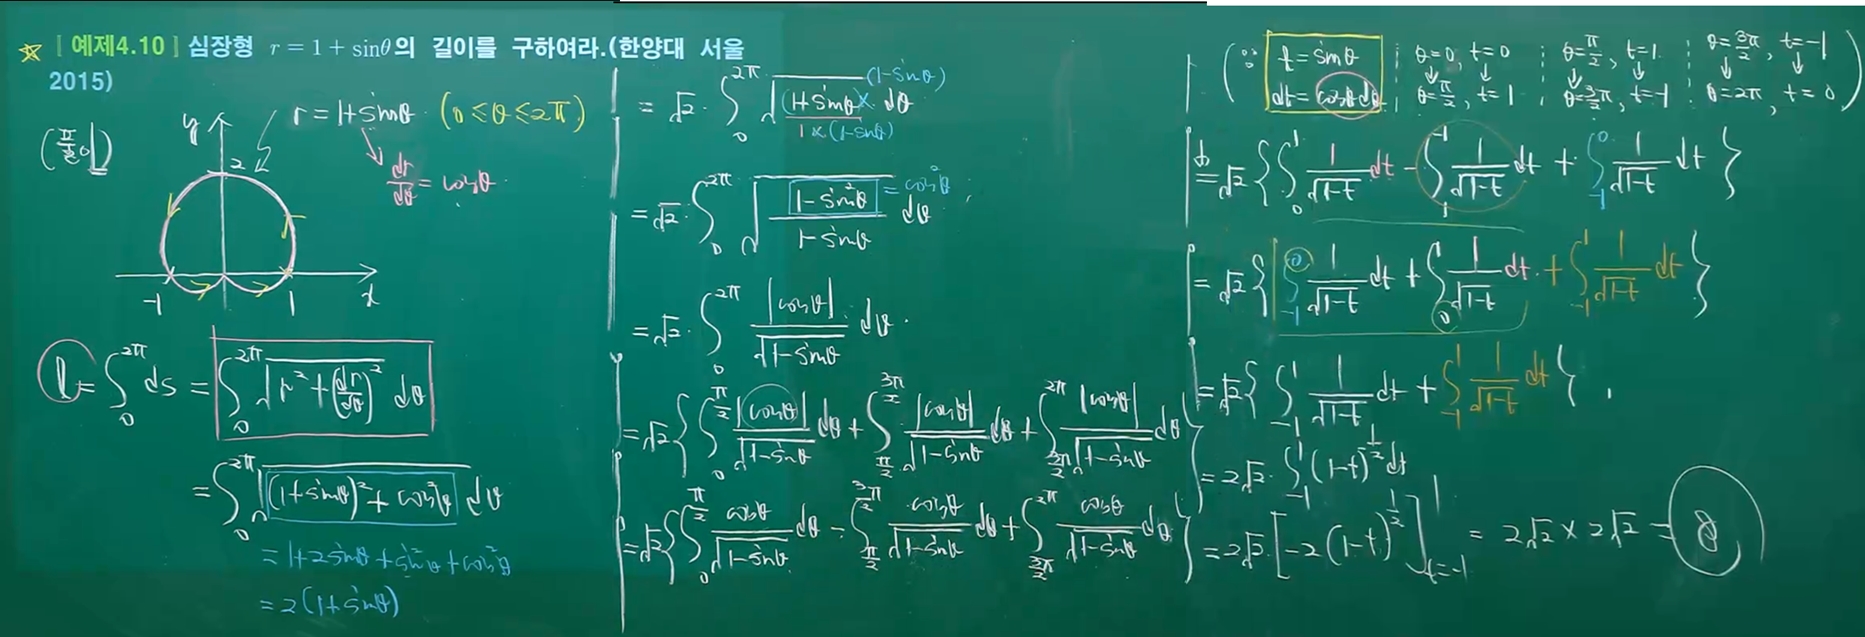 ☆ [예제4.10] 심장형 r = 1 + sinθ의 길이를 구하여라.(한양대 서울
2015)
(풀이)
r = 1+sinθ (0 ≤ θ ≤ 2π)
dr/dθ = cosθ
y
2
-1 1 x
l = ∫_0^{2π} ds = ∫_0^{2π} √(r² + (dr/dθ)²) dθ
= ∫_0^{2π} √((1+sinθ)² + cos²θ) dθ
= 1+2sinθ + sin²θ + cos²θ
= 2(1+sinθ)
= √2 · ∫_0^{2π} √((1+sinθ)×(1-sinθ) / 1×(1-sinθ)) dθ
= √2 · ∫_0^{2π} √((1-sin²θ)/(1-sinθ)) dθ = cos²θ
= √2 · ∫_0^{2π} |cosθ|/√(1-sinθ) dθ
= √2 { ∫_0^{π/2} |cosθ|/√(1-sinθ) dθ + ∫_{π/2}^{3π/2} |cosθ|/√(1-sinθ) dθ + ∫_{3π/2}^{2π} |cosθ|/√(1-sinθ) dθ }
= √2 { ∫_0^{π/2} cosθ/√(1-sinθ) dθ - ∫_{π/2}^{3π/2} cosθ/√(1-sinθ) dθ + ∫_{3π/2}^{2π} cosθ/√(1-sinθ) dθ }
( ∵ t = sinθ θ=0, t=0 θ=π/2, t=1 θ=3π/2, t=-1
dt = cosθdθ θ=π/2, t=1 θ=3π/2, t=-1 θ=2π, t=0 )
= √2 { ∫_0^1 1/√(1-t) dt - ∫_1^{-1} 1/√(1-t) dt + ∫_{-1}^0 1/√(1-t) dt }
= √2 { ∫_{-1}^0 1/√(1-t) dt + ∫_0^1 1/√(1-t) dt + ∫_{-1}^1 1/√(1-t) dt }
= √2 { ∫_{-1}^1 1/√(1-t) dt + ∫_{-1}^1 1/√(1-t) dt }
= 2√2 · ∫_{-1}^1 (1-t)^{-1/2} dt
= 2√2 · [-2(1-t)^{1/2}]_{t=-1}^1 = 2√2 × 2√2 = 8